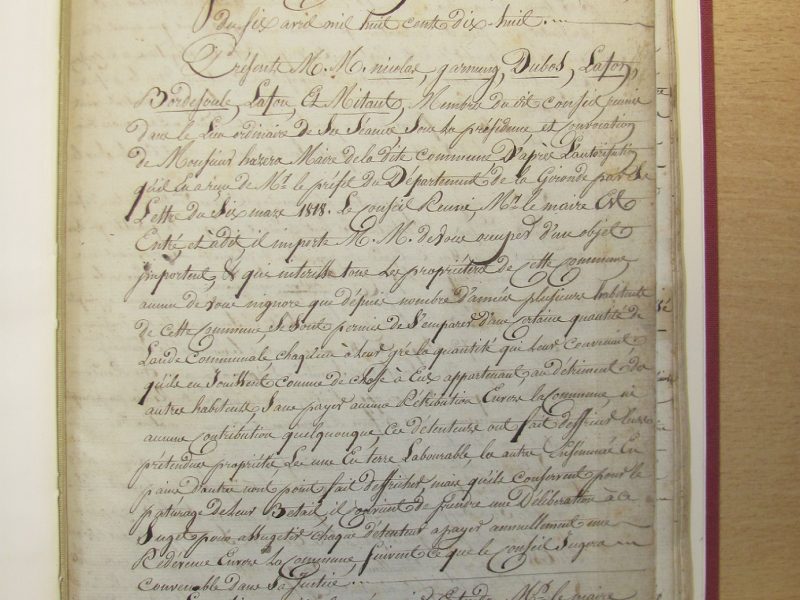 du six avril mil huit cent dix huit.
Présents M. M. nicolas, garnung, Dubos, Lafon,
Bordesoule, Lafon, Et Mitaut, Membres du dit Conseil reunis
dans le Lieu ordinaire de Ses Séances Sous La présidence et convocation
de Monsieur hazera Maire de la d'ite commune D'après L'autorisation
qu'il En a reçu de Mr. le préfet du Département de la Gironde par Sa
Lettre du Six mars 1818. Le conseil Reuni, Mr. le maire Est
Entré et à dit, il importe M. M. de vous occuper d'un objet
important, & qui interesse tous Les propriétaires de cette commune
aucun de vous n'ignore que dépuis nombre d'années plusieurs habitants
de cette Commune, Se Sont permis de S'emparer d'une certaine quantité de
Lande Communale chaq'un à Leur gré la quantité qui Leur convenait
qu'ils en Jouissent comme de chose à Eux appartenant au détriment des
autres habitants, Sans payer aucune Rétribution Envers la Commune, ni
aucune contribution quelquonque, Ces détenteurs ont fait deffricher Leurs
prétendues propriétés Les uns En terre Labourable, les autres L'ensemencé En
pins d'autres n'ont point fait deffricher mais qu'ils conservent pour le
paturage de Leur Betail, il convient de prendre une Déliberation à ce
Sujet pour assujetir chaque détenteur a payer annuellement une
Redevence Envers La Commune, Suivent ce que le Conseil Jugera
convenable dans Sa Justice.
Mr. le maire